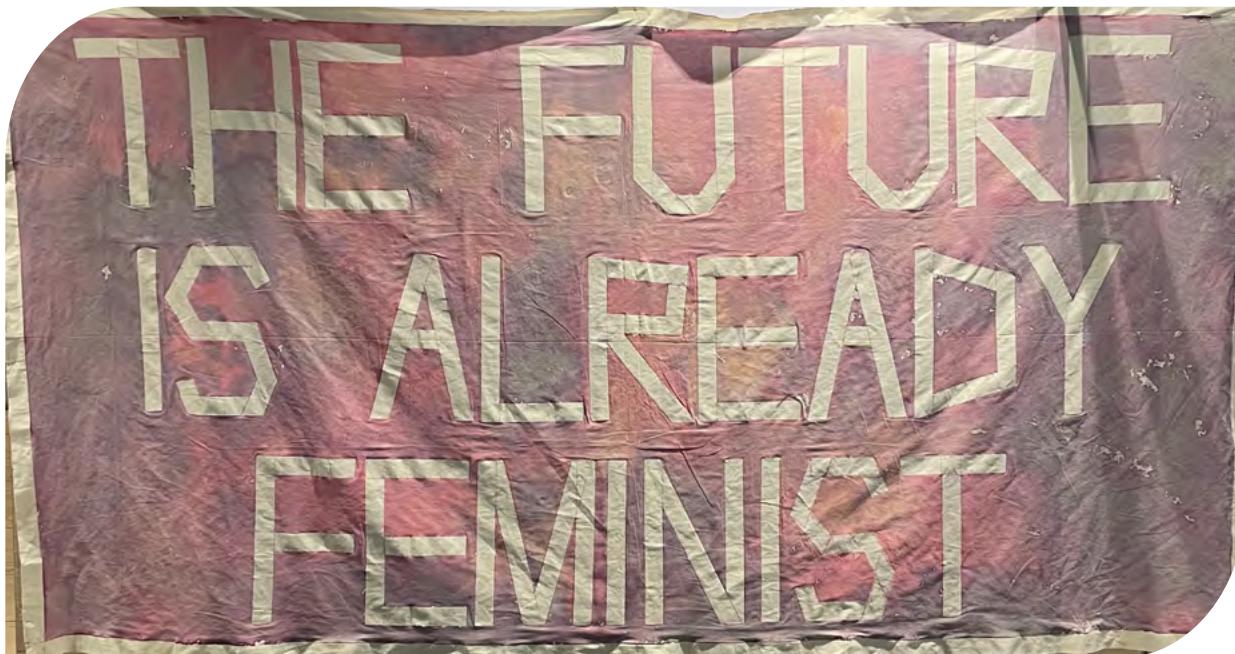 THE FUTURE
IS ALREADY
FEMINIST